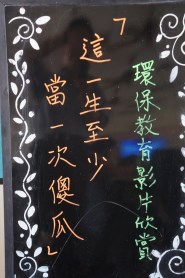 環保教育影片欣賞
「這一生至少
當一次傻瓜」